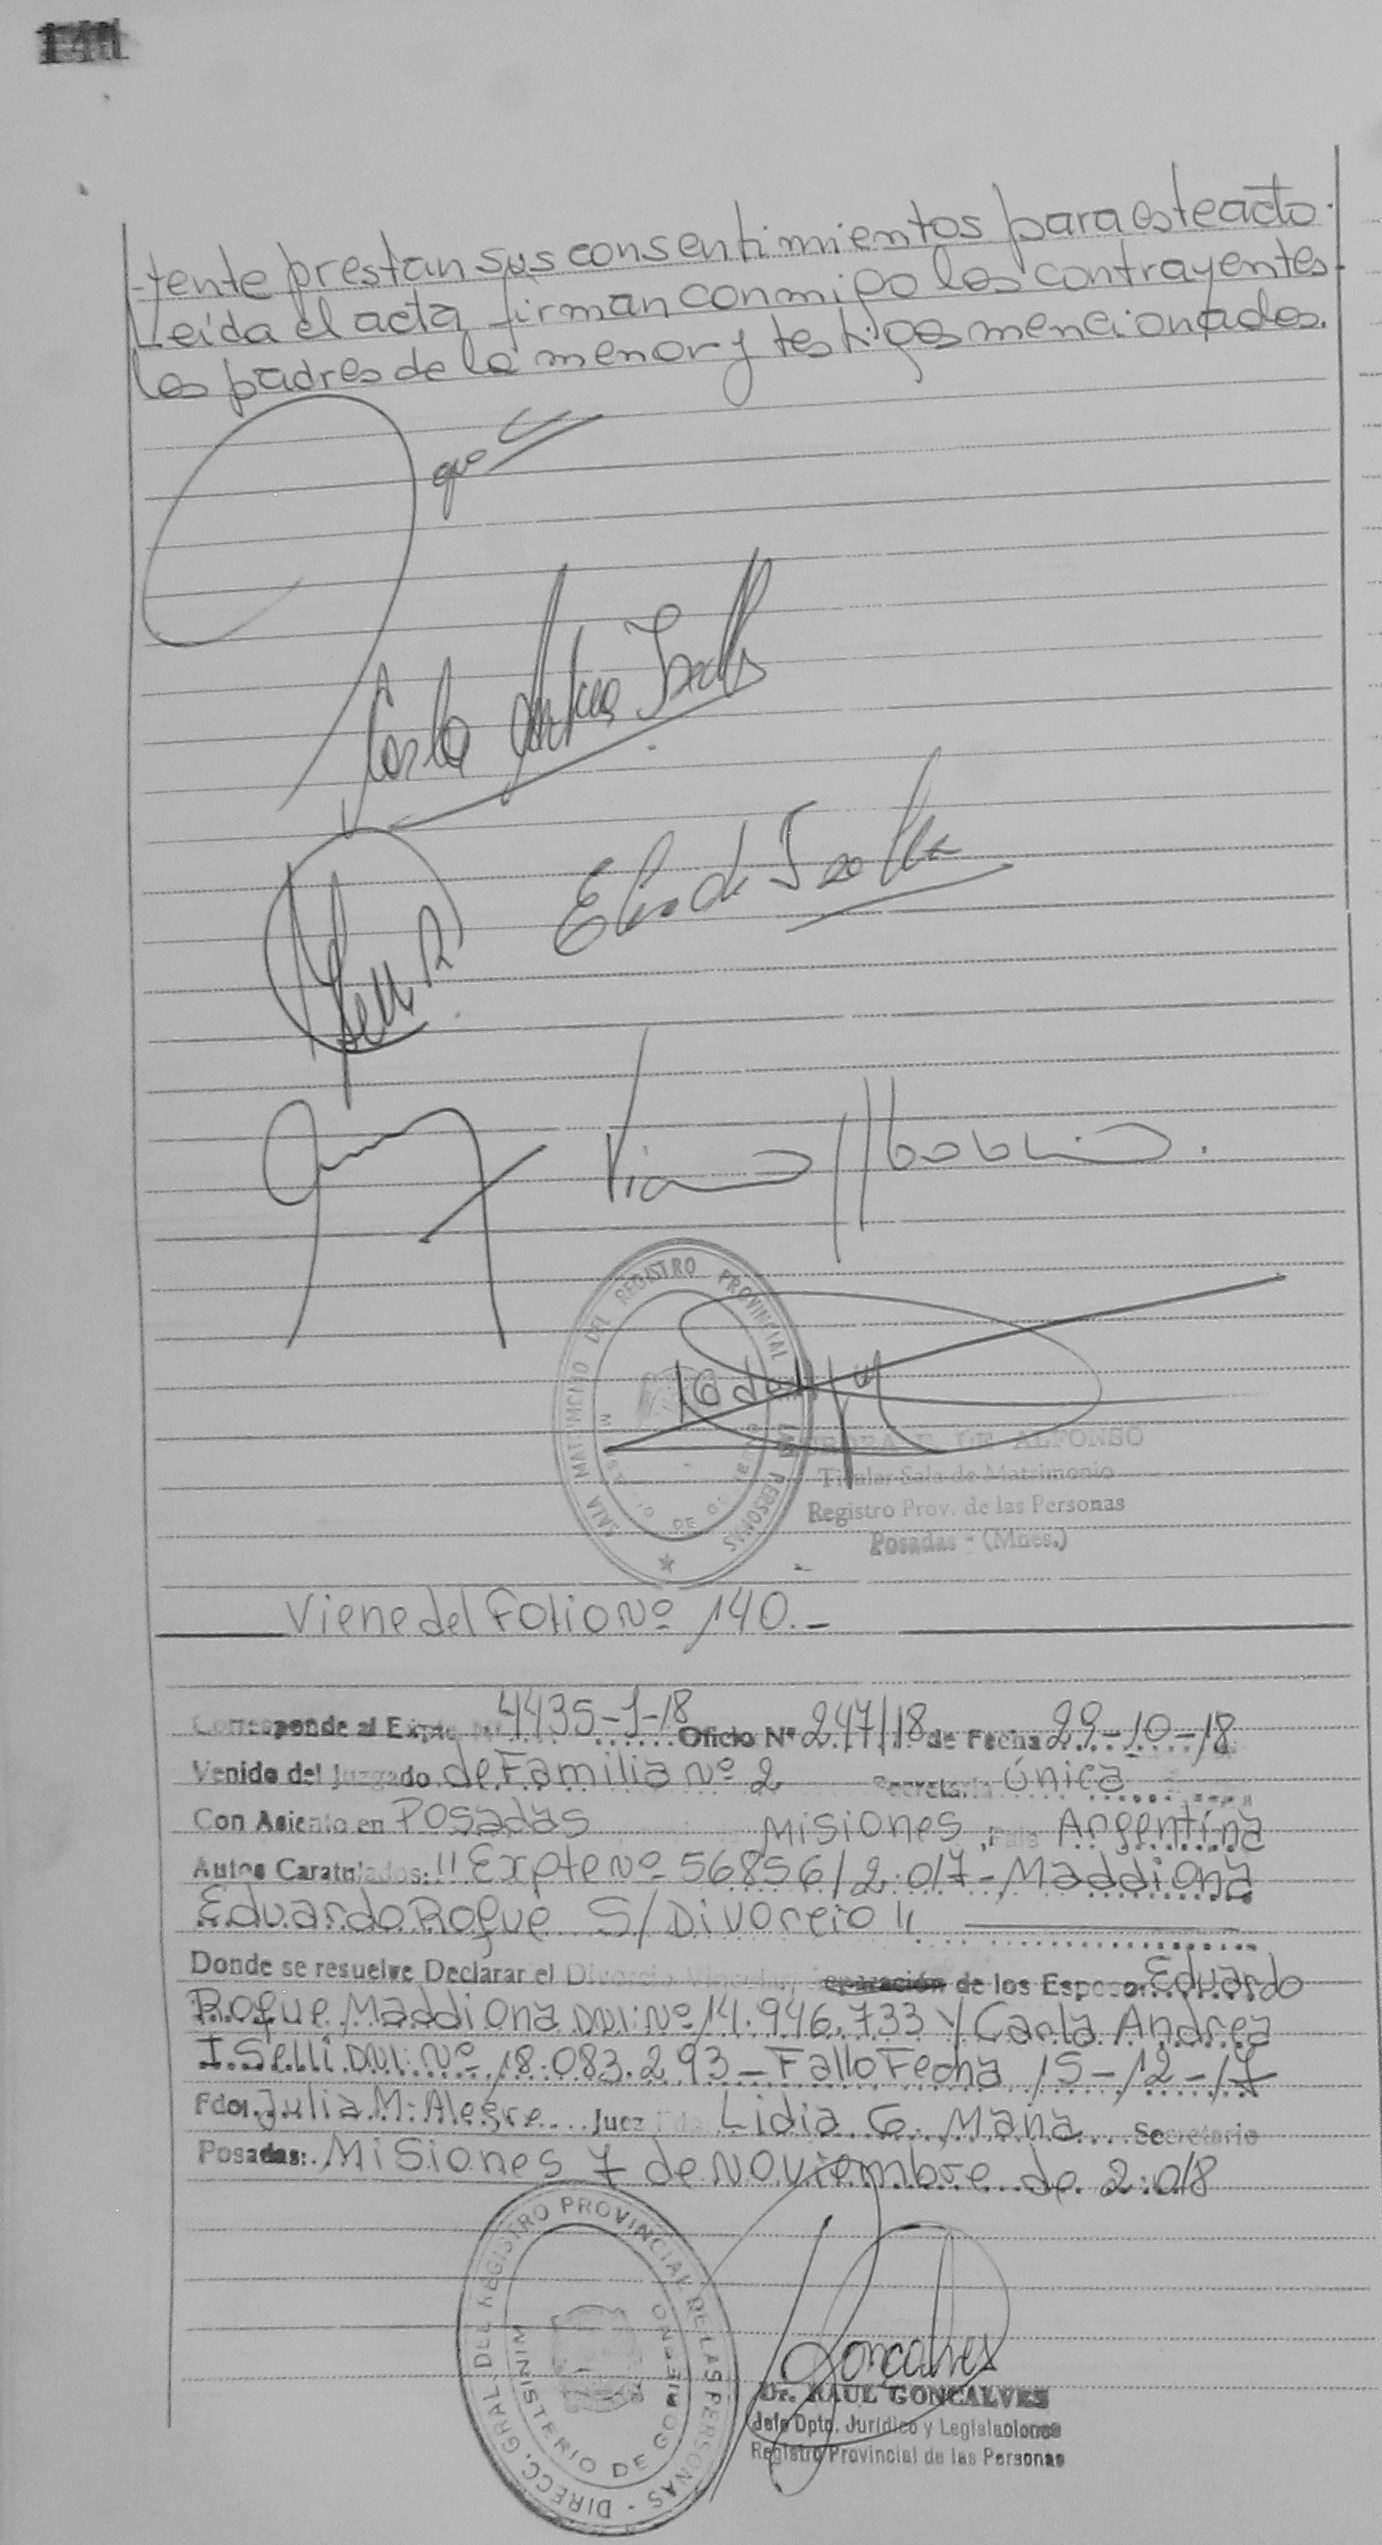 -tente prestan sus consentimientos para este acto.
Leída el acta firman conmigo los contrayentes
los padres de la menor y testigos mencionados.
Carla Andrea Iselli
Elsa de Iselli
REGISTRO PROVINCIAL DE LAS PERSONAS
SALA MATRIMONIO DEL
DE ALFONSO
Titular Sala de Matrimonio
Registro Prov. de las Personas
Posadas - (Mnes.)
Viene del Folio Nº 140.-
Corresponde al Expte. Nº 4435-J-18 Oficio Nº 247/18 de Fecha 29-10-18
Venido del Juzgado de Familia Nº 2 Secretaria Única
Con Asiento en Posadas Misiones, País Argentina
Autos Caratulados: "Expte Nº 56856/2.017-Maddiona
Eduardo Roque S/Divorcio"
Donde se resuelve Declarar el Divorcio Vincular Separación de los Esposos: Eduardo
Roque Maddiona DNI: Nº 14.946.733 y Carla Andrea
Iselli DNI: Nº 18.083.293 - Fallo Fecha 15-12-17
Fdo. Julia M. Alegre Juez Fdo. Lidia G. Mana Secretario
Posadas: Misiones 7 de Noviembre de 2.018
DIRECC. GRAL. DEL REGISTRO PROVINCIAL DE LAS PERSONAS -
MINISTERIO DE GOBIERNO
Goncalves
Dr. RAUL GONCALVES
Jefe Dpto. Jurídico y Legislaciones
Registro Provincial de las Personas